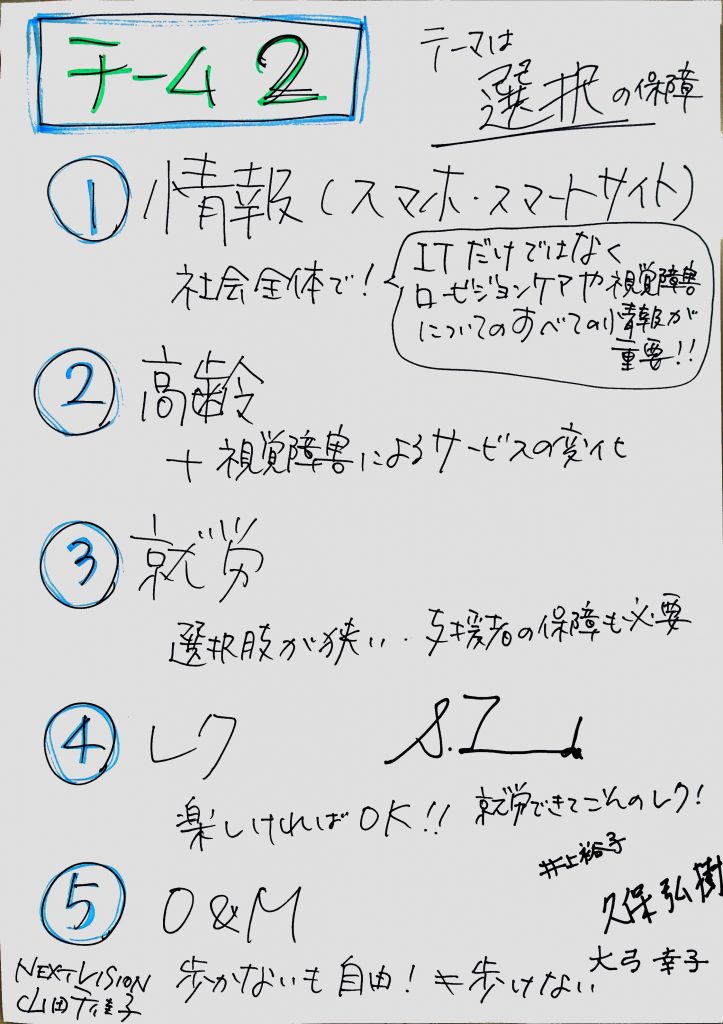 チーム2
テーマは
選択の保障
① 情報(スマホ・スマートサイト)
社会全体で!
ITだけではなく
ロービジョンケアや視覚障害
についてのすべての情報が
重要!!
② 高齢
+視覚障害によるサービスの変化
③ 就労
選択肢が狭い・支援者の保障も必要
④ レク
楽しければOK!!
就労できてこそのレク!
井上裕子
⑤ O&M
久保弘樹
歩かないも自由!≠歩けない
大弓幸子
NEXT VISION
山田